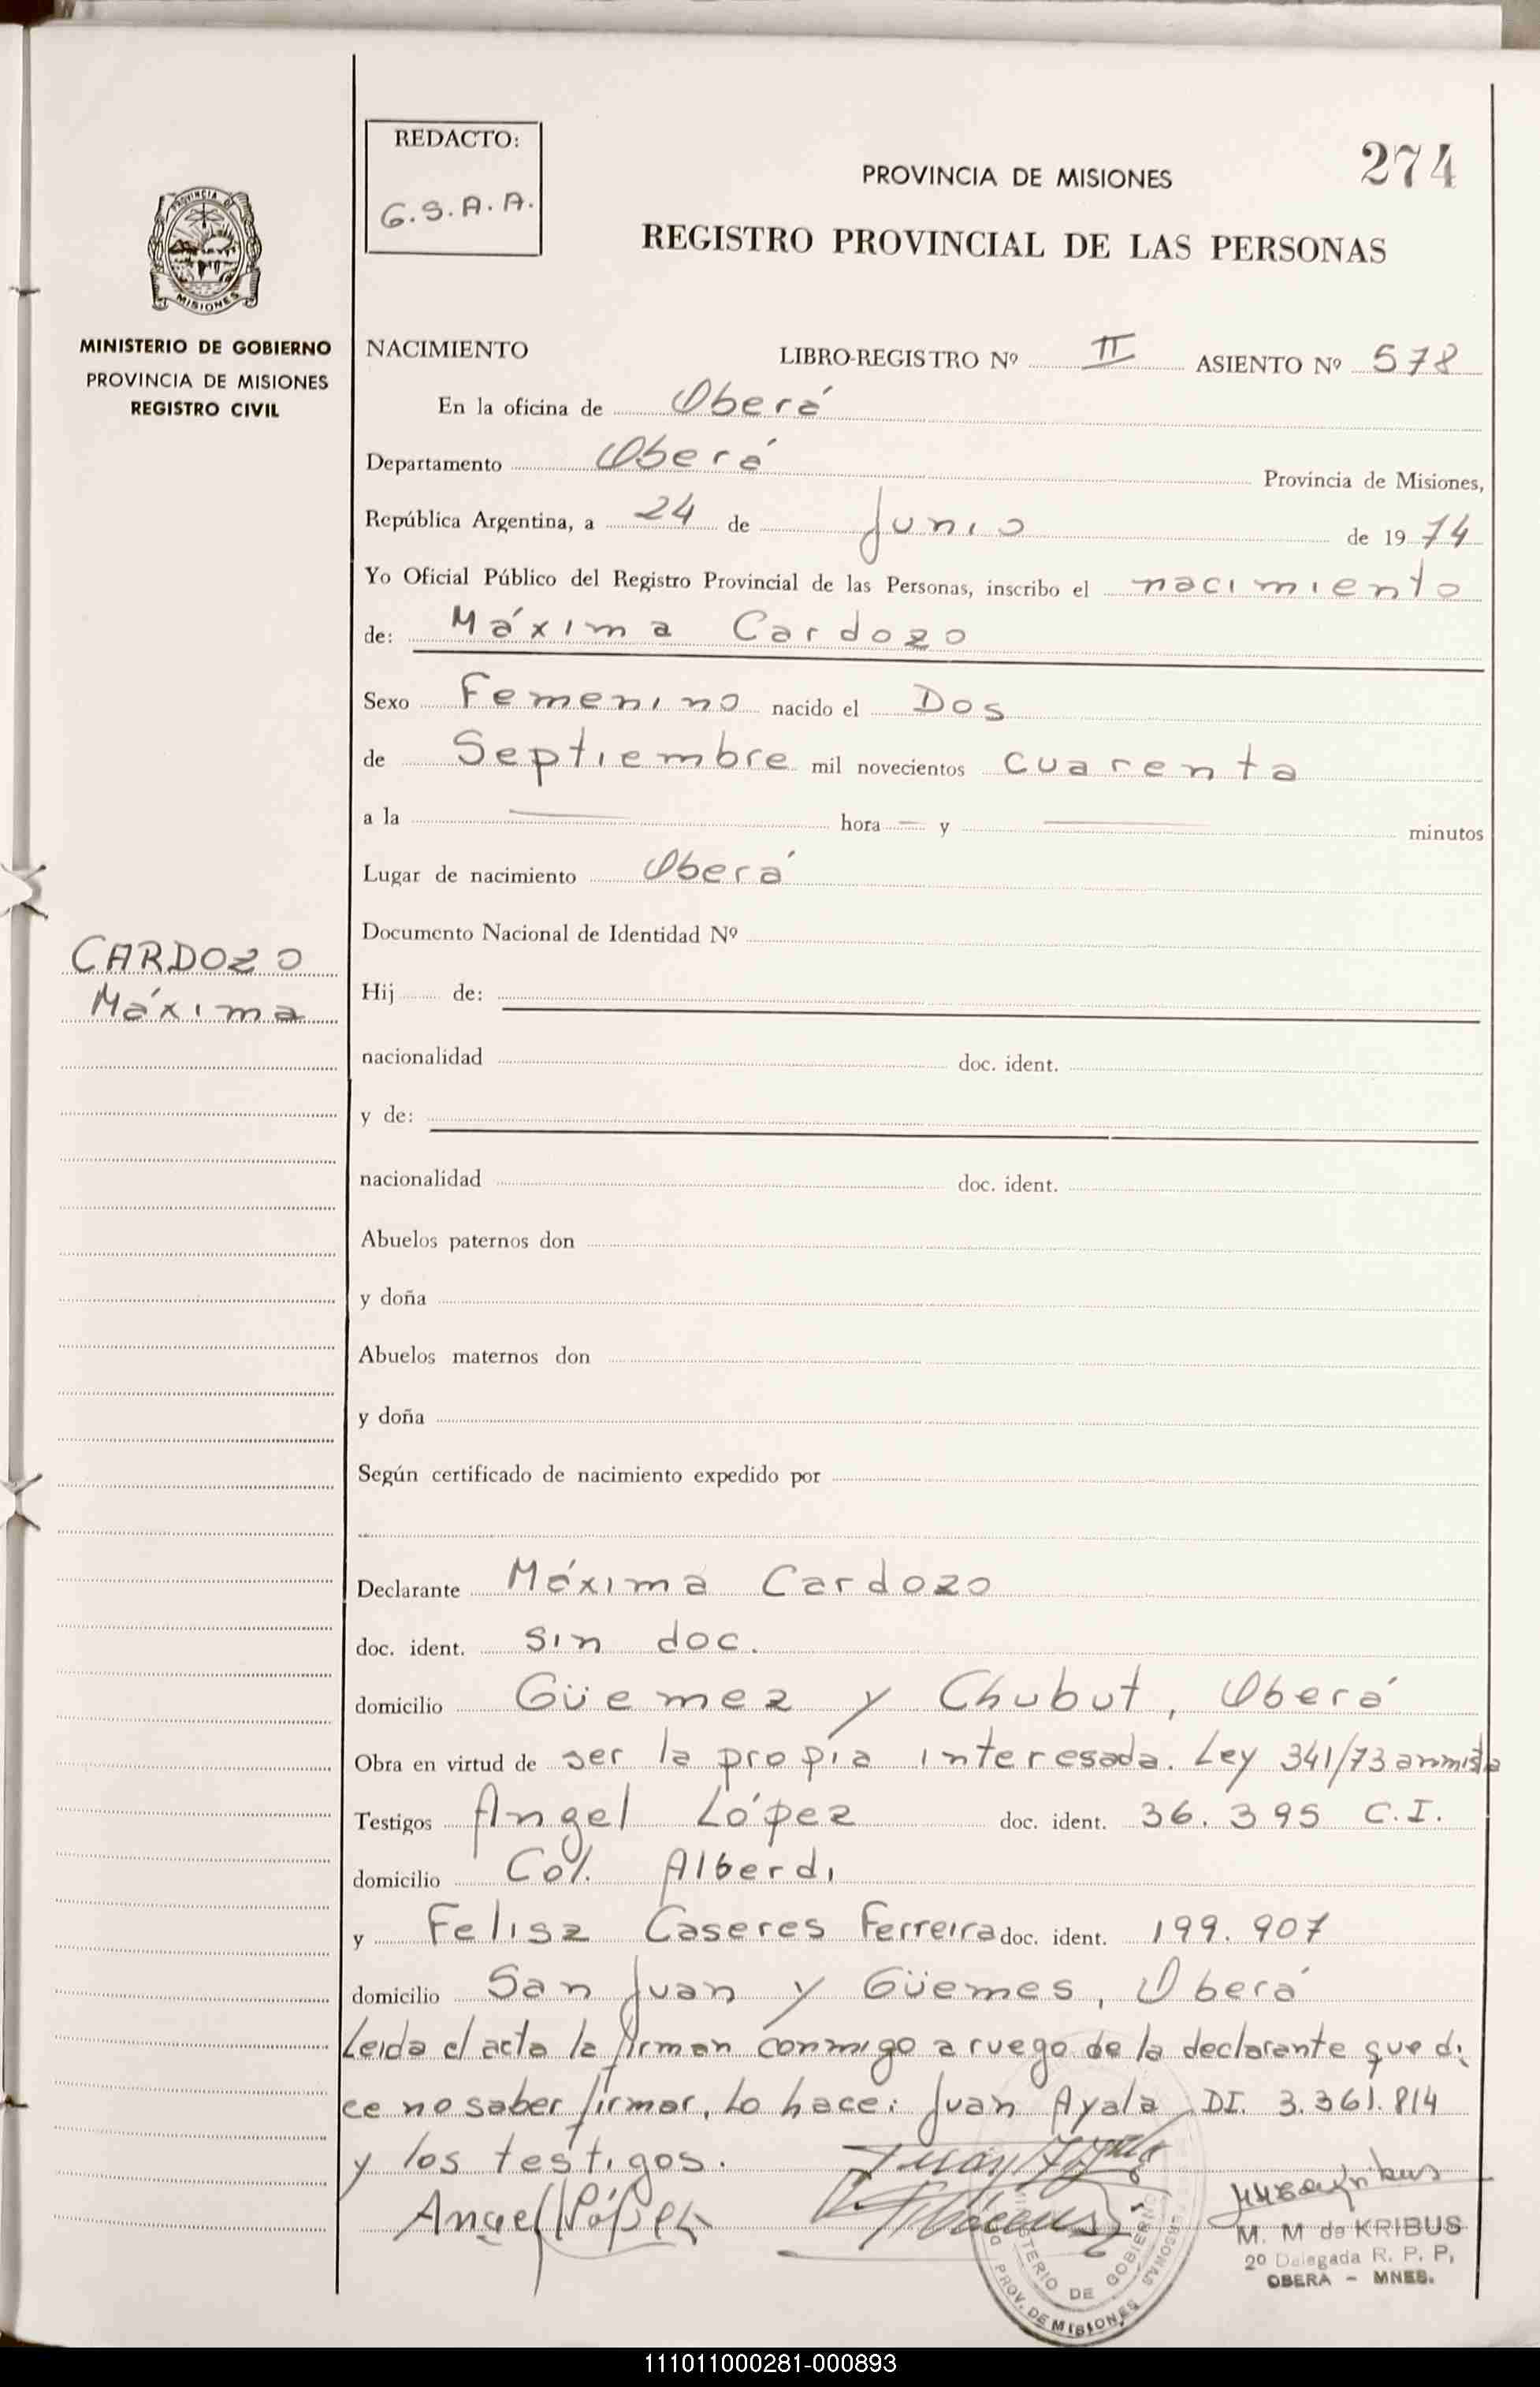 REDACTO:
G.S.A.A.
274
PROVINCIA DE MISIONES
REGISTRO PROVINCIAL DE LAS PERSONAS
PROVINCIA DE
MISIONES
MINISTERIO DE GOBIERNO
PROVINCIA DE MISIONES
REGISTRO CIVIL
NACIMIENTO LIBRO-REGISTRO Nº II ASIENTO Nº 578
En la oficina de Oberá
Departamento Oberá Provincia de Misiones,
República Argentina, a 24 de Junio de 1974
Yo Oficial Público del Registro Provincial de las Personas, inscribo el nacimiento
de: Máxima Cardozo
Sexo Femenino nacido el Dos
de Septiembre mil novecientos cuarenta
a la — hora — y — minutos
Lugar de nacimiento Oberá
Documento Nacional de Identidad Nº
CARDOZO
Máxima
Hij de:
nacionalidad doc. ident.
y de:
nacionalidad doc. ident.
Abuelos paternos don
y doña
Abuelos maternos don
y doña
Según certificado de nacimiento expedido por
Declarante Máxima Cardozo
doc. ident. sin doc.
domicilio Güemez y Chubut, Oberá
Obra en virtud de ser la propia interesada. Ley 341/73 amnistía
Testigos Angel López doc. ident. 36.395 C.I.
domicilio Col. Alberdi
y Felisa Caseres Ferreira doc. ident. 199.907
domicilio San Juan y Güemes, Oberá
Leida el acta la firman conmigo a ruego de la declarante que di
ce no saber firmar, lo hace: Juan Ayala DI. 3.361.814
y los testigos. Juan Ayala
Angel López
M. M de KRIBUS
2º Delegada R. P. P.
OBERA - MNES.
MINISTERIO DE GOBIERNO
PROV. DE MISIONES
111011000281-000893